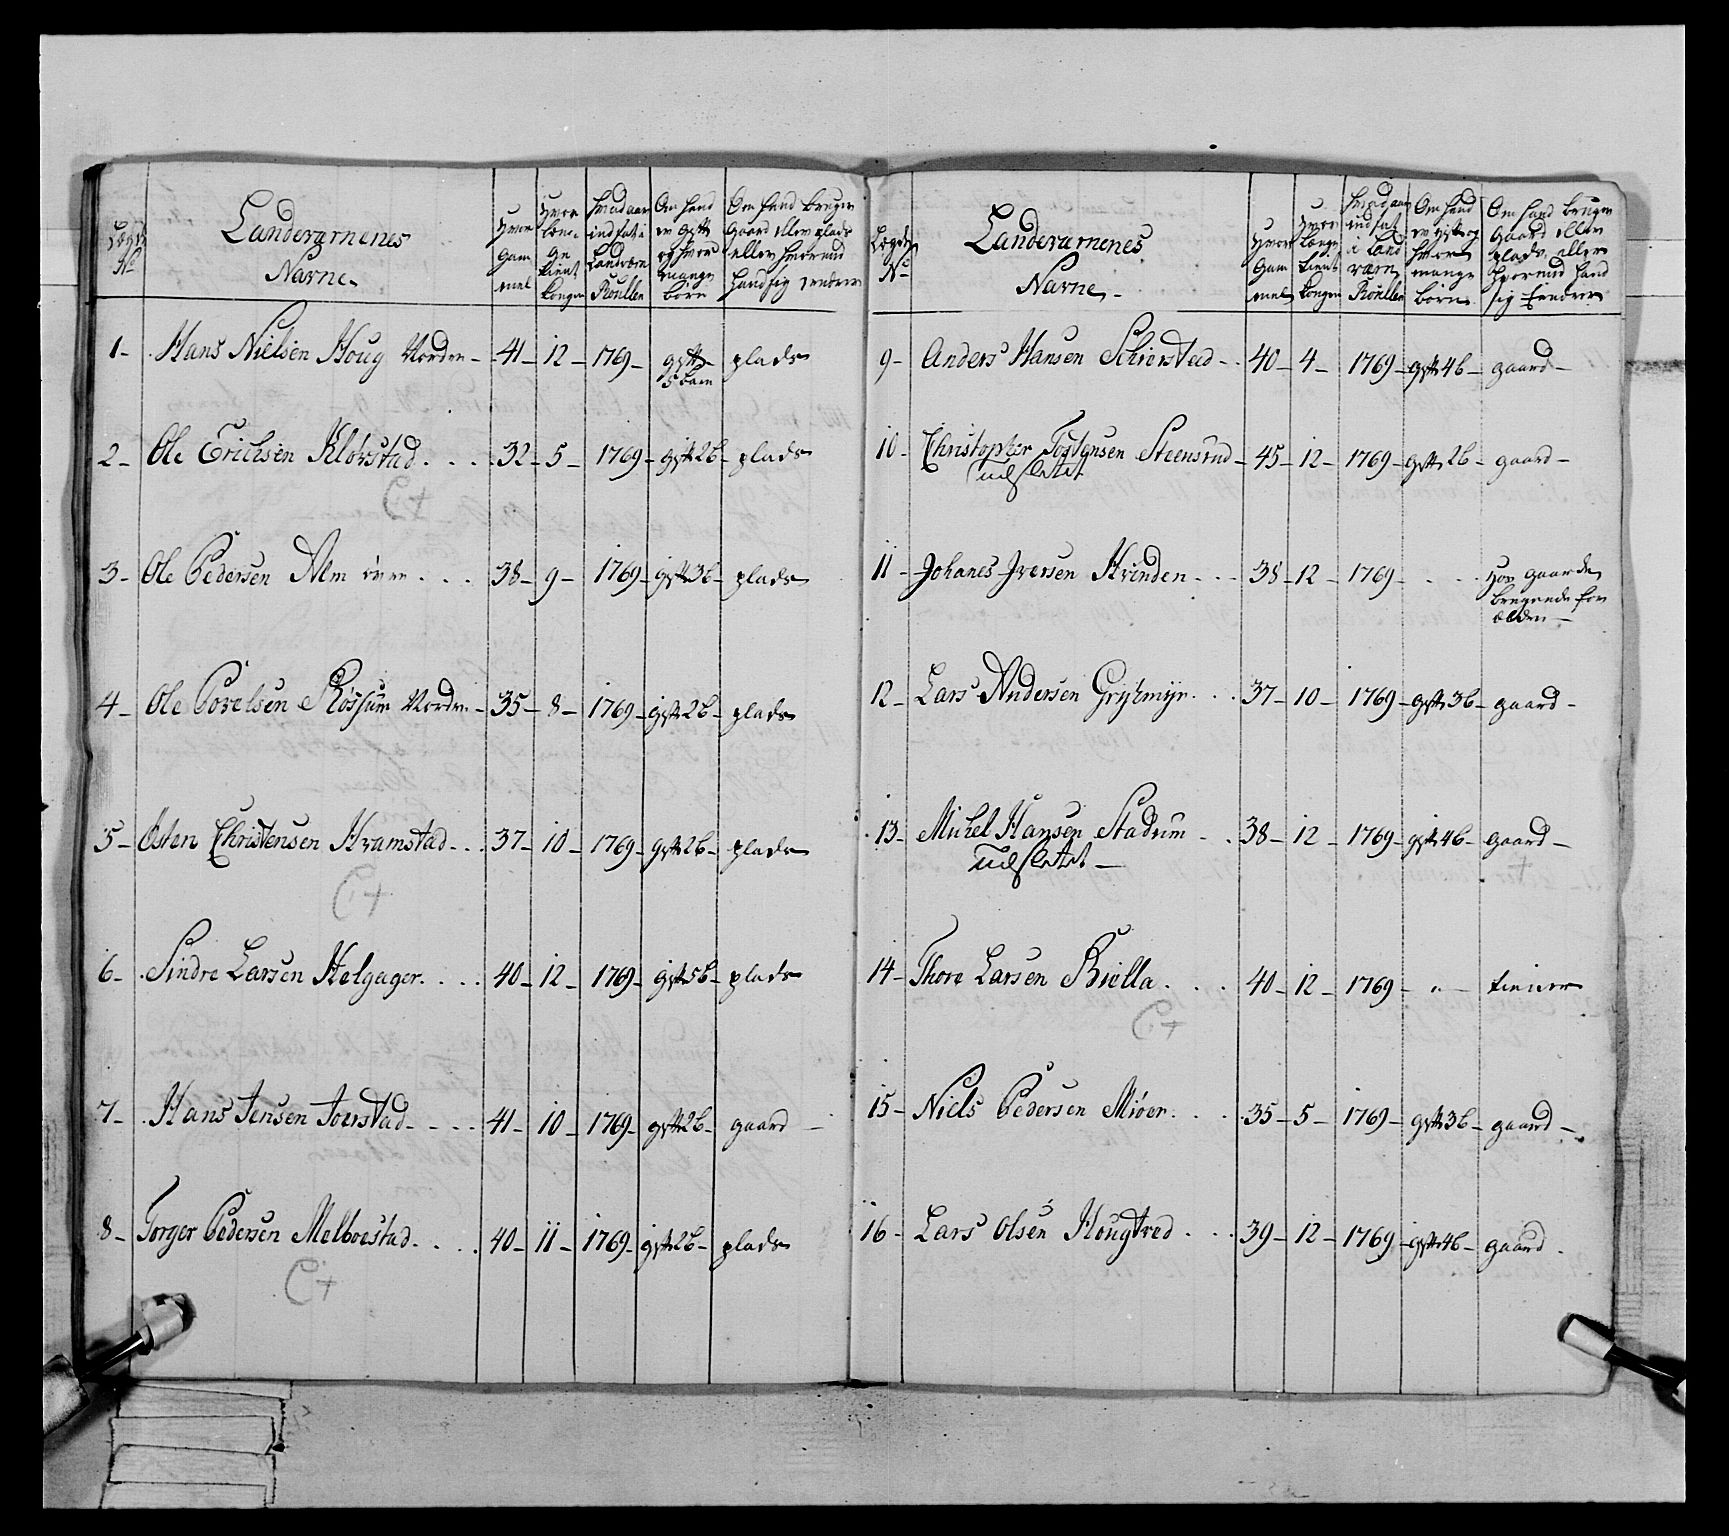 Lægds No
Landevarnenes
Navne
Hvor gammel
Hvor længe tient Kongen
Hvad aar indsat i Landværn Roullen
Om hand er gift og hvor mange børn
Om hand bruger gaard eller plads eller hvormed hand sig ernærer
1 - Hans Nielsen Houg Nordre - 41 - 12 - 1769 - gift 5 barn plads
2 - Ole Erichsen Klørstad 32 - 5 - 1769 - gift 2b - plads
3 - Ole Pedersen Alm øvre 38 - 9 - 1769 - gift 3b - plads
4 - Ole Povelsen Røssum Nordre - 35 - 8 - 1769 - gift 2b - plads
5 - Østen Christensen Kramstad 37 - 10 - 1769 - gift 2b - plads
6 - Sindre Larsen Helgager 40 - 12 - 1769 - gift 5b - plads
7 - Hans Jensen Joerstad 41 - 10 - 1769 - gift 2b - gaard
8 - Torger Pedersen Melboestad 40 - 11 - 1769 - gift 2b - plads
Lægds No
Landevarnenes
Navne
Hvor gammel
Hvor længe tient Kongen
Hvad aar indsat i Land værn Roullen
Om hand er gift og hvor mange børn
Om hand bruger gaard eller plads, eller hvormed hand sig ernærer
9 - Anders Hansen Schierstad 40 - 4 - 1769 - gift 4b - gaard
10 - Christopher Tostensen Steensrud - 45 - 12 - 1769 - gift 2b - gaard
udslettet
11 - Johanes Iversen Kvinden 38 - 12 - 1769 - hos gaard brugende for ældre
12 - Lars Andersen Grytmyr 37 - 10 - 1769 - gift 3b - gaard
13 - Michel Hansen Stadum 38 - 12 - 1769 - gift 4b - gaard
udslettet
14 - Thore Larsen Biella 40 - 12 - 1769 - tiener
15 - Niels Pedersen Miøer 35 - 5 - 1769 - gift 3b - gaard
16 - Lars Olsen Hougtved 39 - 12 - 1769 - gift 4b - gaard